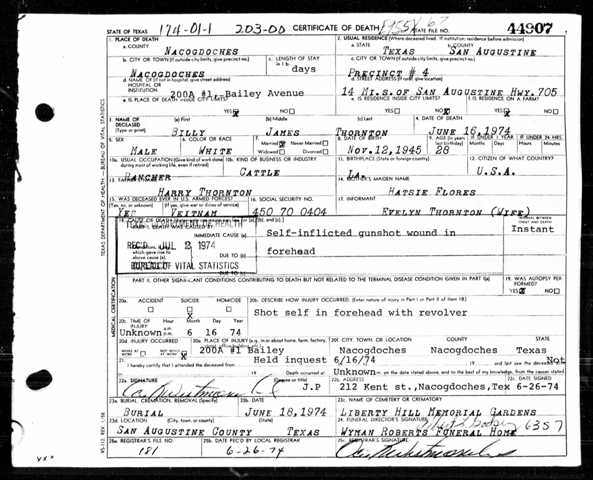 STATE OF TEXAS 174-01-1 203-00 CERTIFICATE OF DEATH STATE FILE NO. 44907
1. PLACE OF DEATH 2. USUAL RESIDENCE (Where deceased lived. If institution: residence before admission)
a. COUNTY a. STATE b. COUNTY
NACOGDOCHES TEXAS SAN AUGUSTINE
b. CITY OR TOWN (If outside city limits, give precinct no.) c. LENGTH OF STAY c. CITY OR TOWN (If outside city limits, give precinct no.)
NACOGDOCHES days PRECINCT # 4
d. NAME OF (If not in hospital, give street address) HOSPITAL OR INSTITUTION d. STREET ADDRESS (If rural, give location)
200A #1, Bailey Avenue 14 MI.S OF SAN AUGUSTINE HWY.705
e. IS PLACE OF DEATH INSIDE CITY LIMITS? e. IS RESIDENCE INSIDE CITY LIMITS? f. IS RESIDENCE ON A FARM?
YES X NO YES NO YES NO
3. NAME OF DECEASED (Type or print) (a) First (b) Middle (c) Last 4. DATE OF DEATH
BILLY JAMES THORNTON JUNE 16,1974
5. SEX 6. COLOR OR RACE 7. Married Never Married Widowed Divorced 8. DATE OF BIRTH 9. AGE (In years last birthday) IF UNDER 1 YEAR Months Days IF UNDER 24 HRS. Hours Min.
MALE WHITE NOV.12,1945 28
10a. USUAL OCCUPATION (Give kind of work done during most of working life, even if retired) 10b. KIND OF BUSINESS OR INDUSTRY 11. BIRTHPLACE (State or foreign country) 12. CITIZEN OF WHAT COUNTRY?
RANCHER CATTLE LA. U.S.A.
13. FATHER'S NAME 14. MOTHER'S MAIDEN NAME
HARRY THORNTON HATSIE FLORES
15. WAS DECEASED EVER IN U.S. ARMED FORCES? (Yes, no, or unknown) (If yes, give war or dates of service) 16. SOCIAL SECURITY NO. 17. INFORMANT
YES VEITNAM 450 70 0404 EVELYN THORNTON (WIFE)
IMMEDIATE CAUSE (a) Self-inflicted gunshot wound in Instant
REC'D JUL 2 1974 DUE TO (b) forehead
BUREAU OF VITAL STATISTICS DUE TO (c)
PART II. OTHER SIGNIFICANT CONDITIONS CONTRIBUTING TO DEATH BUT NOT RELATED TO THE TERMINAL DISEASE CONDITION GIVEN IN PART I(a) 19. WAS AUTOPSY PERFORMED?
YES NO
20a. ACCIDENT SUICIDE HOMICIDE 20b. DESCRIBE HOW INJURY OCCURRED. (Enter nature of injury in Part I or Part II of item 18.)
X Shot self in forehead with revolver
20c. TIME OF INJURY Hour Month Day Year
Unknown 6 16 74
20d. INJURY OCCURRED 20e. PLACE OF INJURY (e.g., in or about home, farm, factory, 20f. CITY, TOWN, OR LOCATION COUNTY STATE
200A #1 Bailey Nacogdoches Nacogdoches Texas
21. I hereby certify that I attended the deceased Held inquest 6/16/74 19 and last saw the deceased Not
Death occurred at Unknown m. on the date stated above, and to the best of my knowledge, from the causes stated.
22a. SIGNATURE (Degree or title) 22b. ADDRESS 22c. DATE SIGNED
J.P 212 Kent st.,Nacogdoches,Tex 6-26-74
23a. BURIAL, CREMATION, REMOVAL (Specify) 23b. DATE 23c. NAME OF CEMETERY OR CREMATORY
BURIAL JUNE 18,1974 LIBERTY HILL MEMORIAL GARDENS
23d. LOCATION (City, town, or county) (State) 24. FUNERAL DIRECTOR'S SIGNATURE 6357
SAN AUGUSTINE COUNTY TEXAS WYMAN ROBERTS FUNERAL HOME
25a. REGISTRAR'S FILE NO. 25b. DATE REC'D BY LOCAL REGISTRAR 25c. REGISTRAR'S SIGNATURE
181 6-26-74
TEXAS DEPARTMENT OF HEALTH—BUREAU OF VITAL STATISTICS
MEDICAL CERTIFICATION